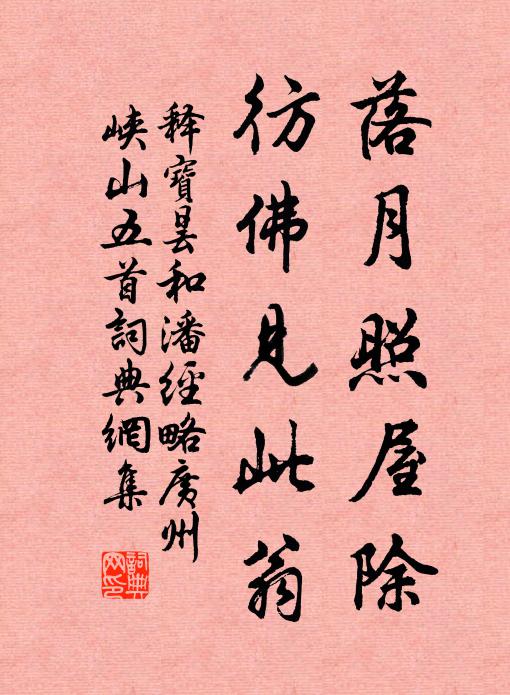 落月照屋除
彷佛見此翁
释寶曇和潘經略廣州
峽山五首詞典網集
詞典
网印